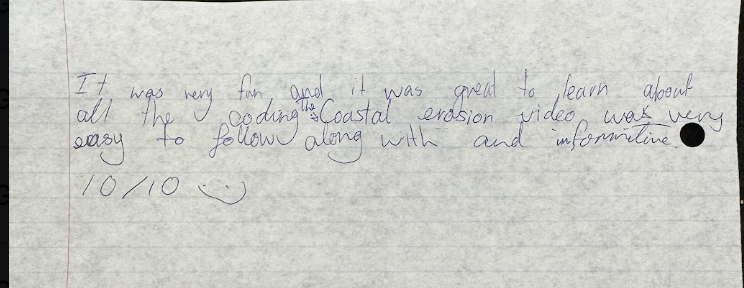 It was very fun and it was great to learn about
all the coding. The Coastal erosion video was very
easy to follow along with and informitive.
10/10 :)